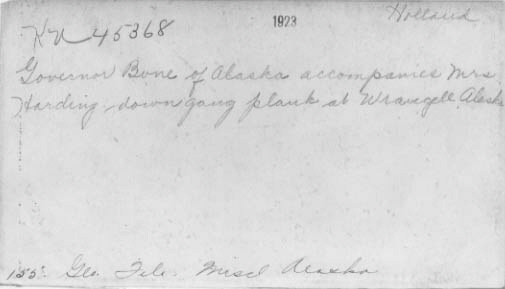 KU 45368
1923
Holland
Governor Bone of Alaska accompanies Mrs
Harding down gang plank at Wrangell Alaska
155. Geo. File. Miscl Alaska